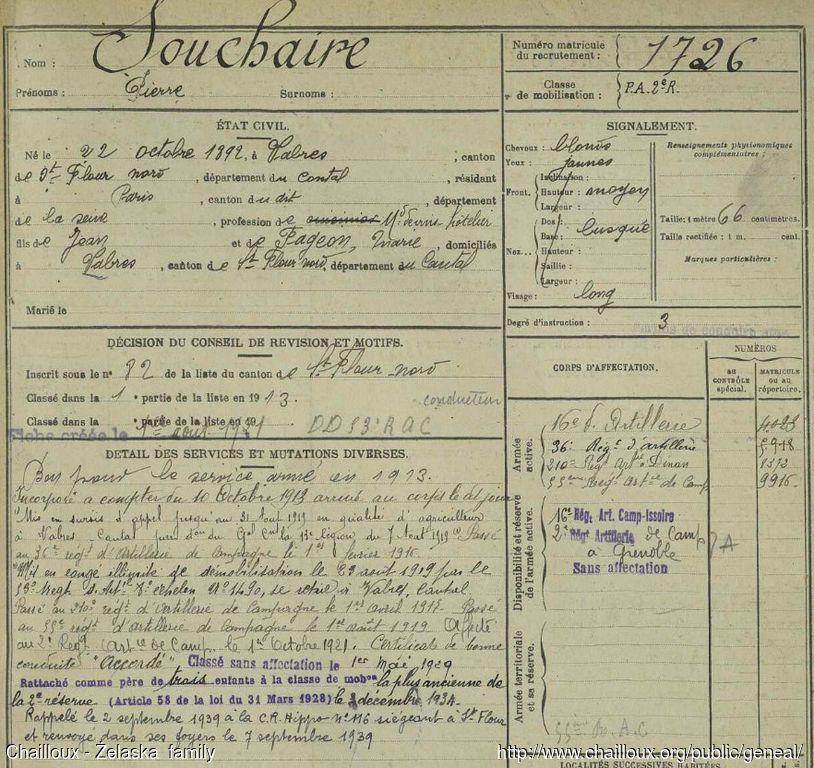 Nom : Souchaire
Prénoms : Pierre Surnoms :
Numéro matricule du recrutement : 1726
Classe de mobilisation : P.A. 2e R.
ÉTAT CIVIL.
Né le 22 octobre 1892, à Vabres, canton
de St Flour nord, département du Cantal, résidant
à Paris, canton du dit, département
de la Seine, profession de hôtelier
fils de Jean et de Pageon, Marie, domiciliés
à Vabres, canton de St Flour nord, département du Cantal
Marié le
SIGNALEMENT.
Cheveux : blonds
Yeux : jaunes
Front. Inclinaison :
Hauteur : moyen
Largeur :
Nez... Dos : busqué
Base :
Hauteur :
Saillie :
Largeur :
Visage : long
Renseignements physionomiques complémentaires :
Taille : 1 mètre 66 centimètres.
Taille rectifiée : 1 m. cent.
Marques particulières :
Degré d'instruction : 3
DÉCISION DU CONSEIL DE REVISION ET MOTIFS.
Inscrit sous le n° 82 de la liste du canton de St Flour nord
Classé dans la 1e partie de la liste en 1913.
conducteur
Classé dans la e partie de la liste en 19
Fiche créée le
DETAIL DES SERVICES ET MUTATIONS DIVERSES.
Bon pour le service armé en 1913.
Incorporé à compter du 10 Octobre 1913 arrivé au corps le dit jour
Mis en sursis d'appel jusqu'au 31 Aout 1919 en qualité d'agriculteur
à Vabres, Cantal 13e légion du 7 Aout 1919 Passé
au 36e régt d'artillerie de Campagne le 1er février 1916
Mis en congé illimité de démobilisation le 29 août 1919 par le
53e Regt d'Art. échelon N° 1490, se retire à Vabres, Cantal.
Passé au 210e régt d'artillerie de Campagne le 1er avril 1917. Passé
au 53e régt d'artillerie de Campagne le 1er août 1919 Affecté
au 2e Regt Artie de Camp. le 1er Octobre 1921. Certificate de bonne
conduite "Accordé" Classé sans affectation le 1er Mai 1929
Rattaché comme père de trois enfants à la classe de mobon la plus ancienne de
la 2e réserve (Article 58 de la loi du 31 Mars 1928) le 3 décembre 1934.
Rappelé le 2 septembre 1939 à la C.R. Hippo N° 116 siégeant à St Flour
et renvoyé dans ses foyers le 7 septembre 1939
CORPS D'AFFECTATION.
NUMÉROS
AU CONTRÔLE spécial.
MATRICULE OU AU répertoire.
Armée active.
16e d'Artillerie 4023
36e Regt d'artillerie
210e Regt Artie Dinan
53eme Regt Artie de Camp 9916
Disponibilité et réserve de l'armée active.
16e Rég. Art. Camp-Issoire
2e Régt Artillerie de Camp
à Grenoble
A
Sans affectation
Armée territoriale et sa réserve.
LOCALITÉS SUCCESSIVES HABITÉES
Chailloux - Zelaska family
http://www.chailloux.org/public/geneal/